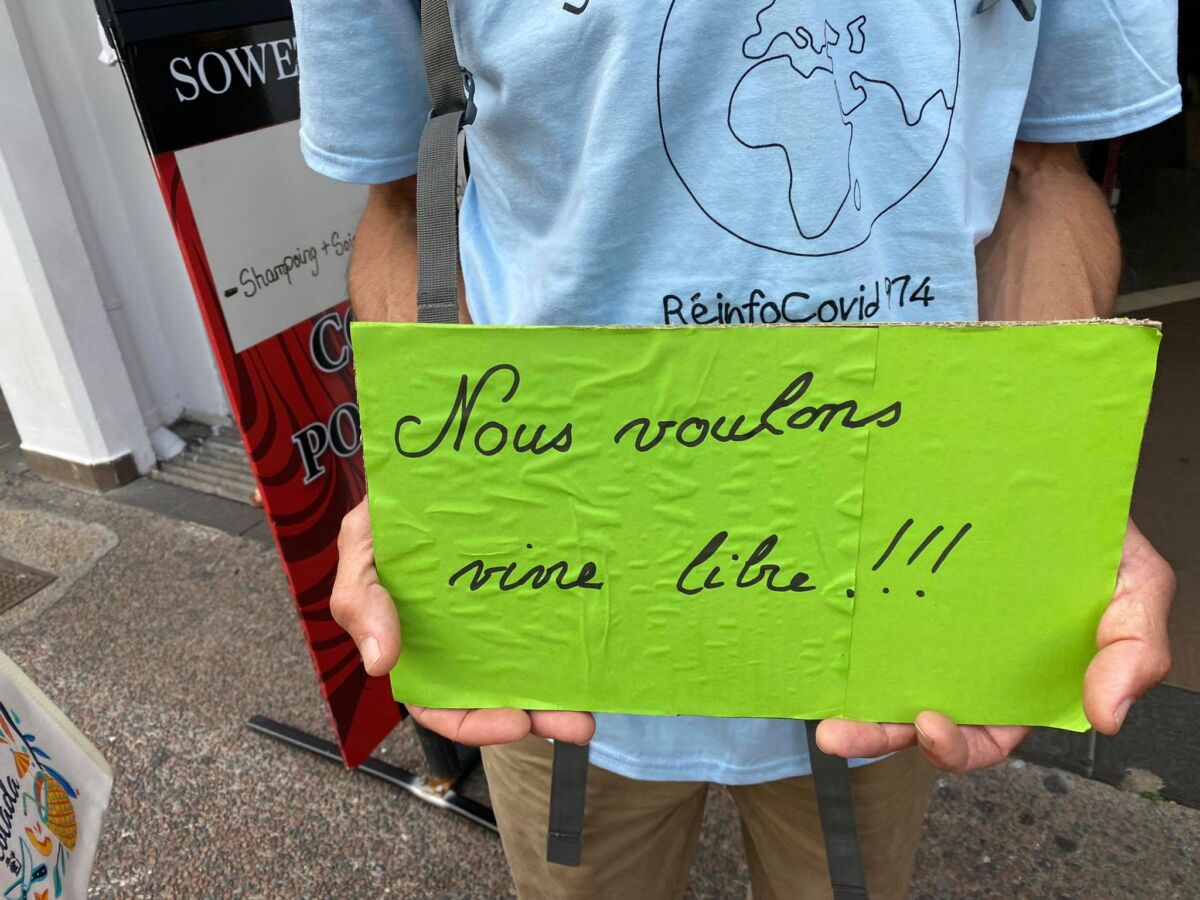 SOWE
- Shampoing + Soi
CO
PO
RéinfoCovid974
Nous voulons
vivre libre.!!!
colada